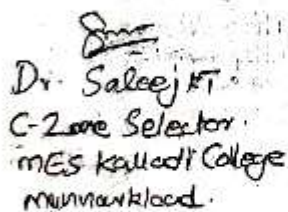 Dr. Saleej KT.
C-Zone Selector.
MES Kalladi College
Mannarkkad.